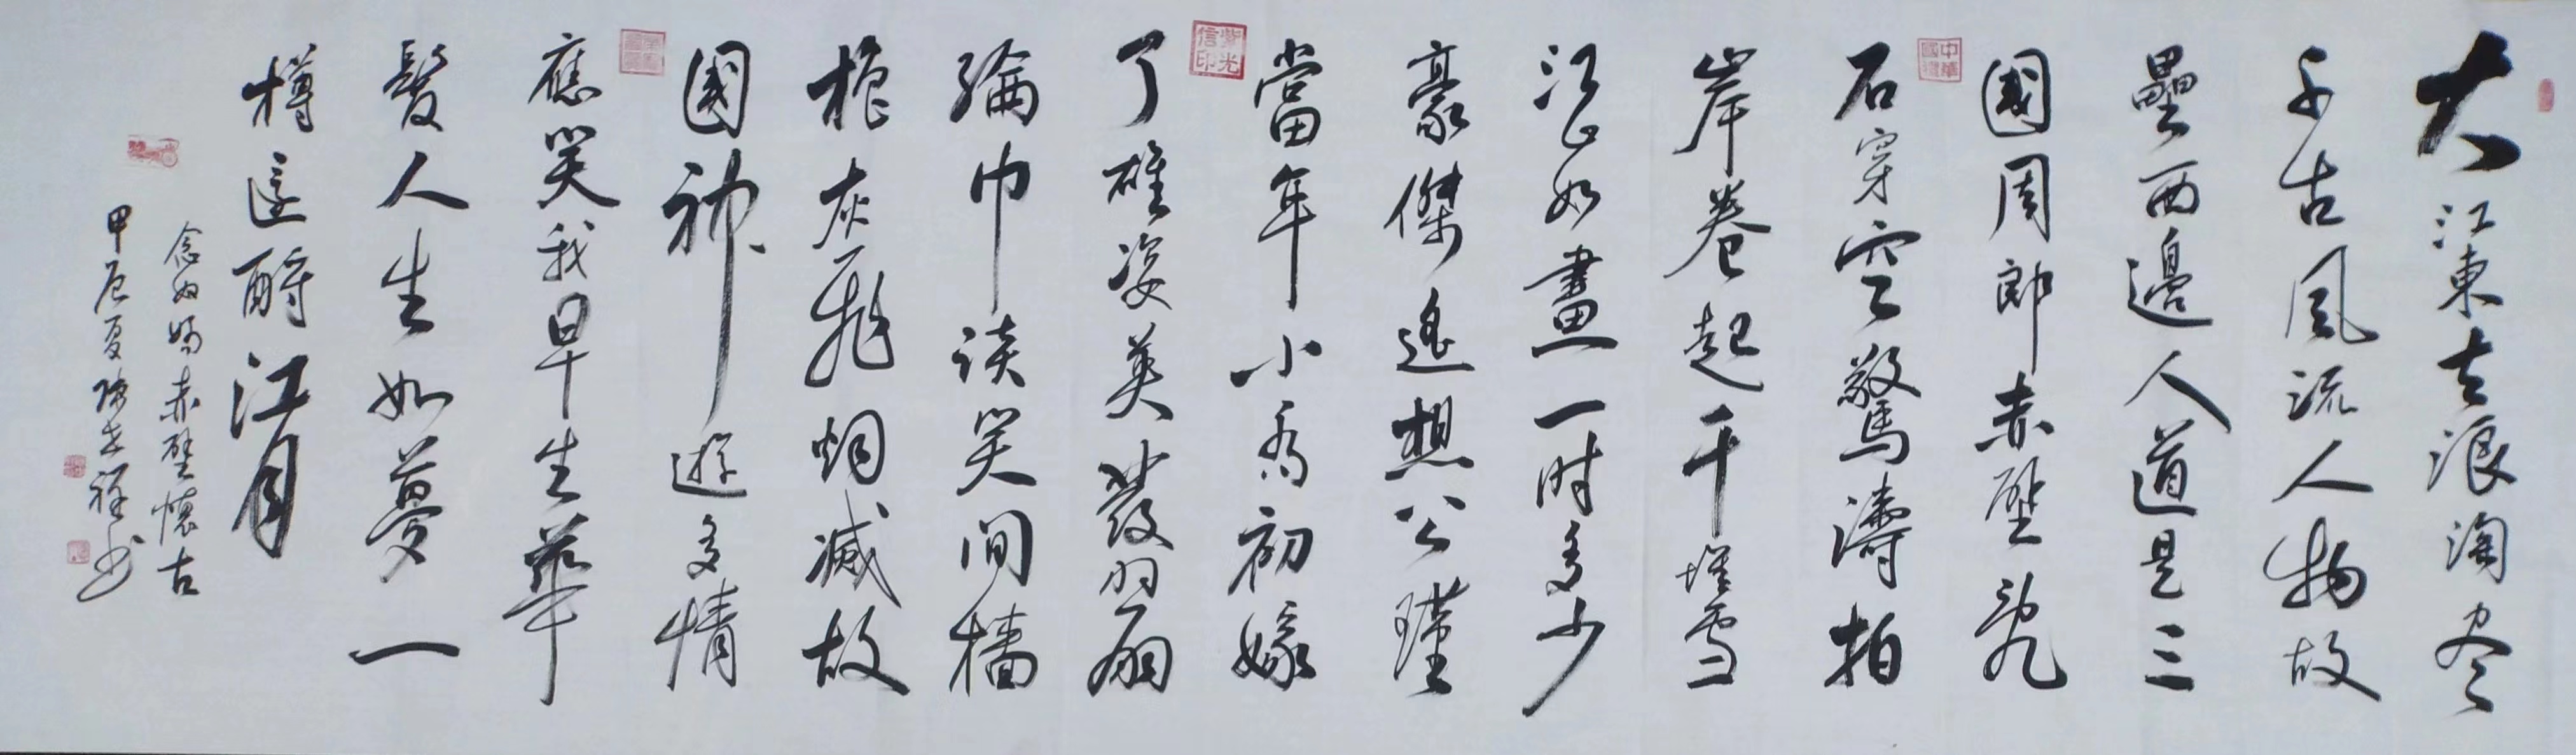 大江東去浪淘尽
千古風流人物故
壘西邊人道是三
國周郎赤壁亂
石穿空驚濤拍
岸卷起千堆雪
江山如畫一时多少
豪傑遙想公瑾
當年小喬初嫁
了雄姿英發羽扇
綸巾談笑间檣
櫓灰飛烟滅故
國神遊多情
應笑我早生華
髮人生如夢一
樽還酹江月
念奴嬌赤壁懷古
甲辰夏陳志祥书
中華國禮
紫光信印